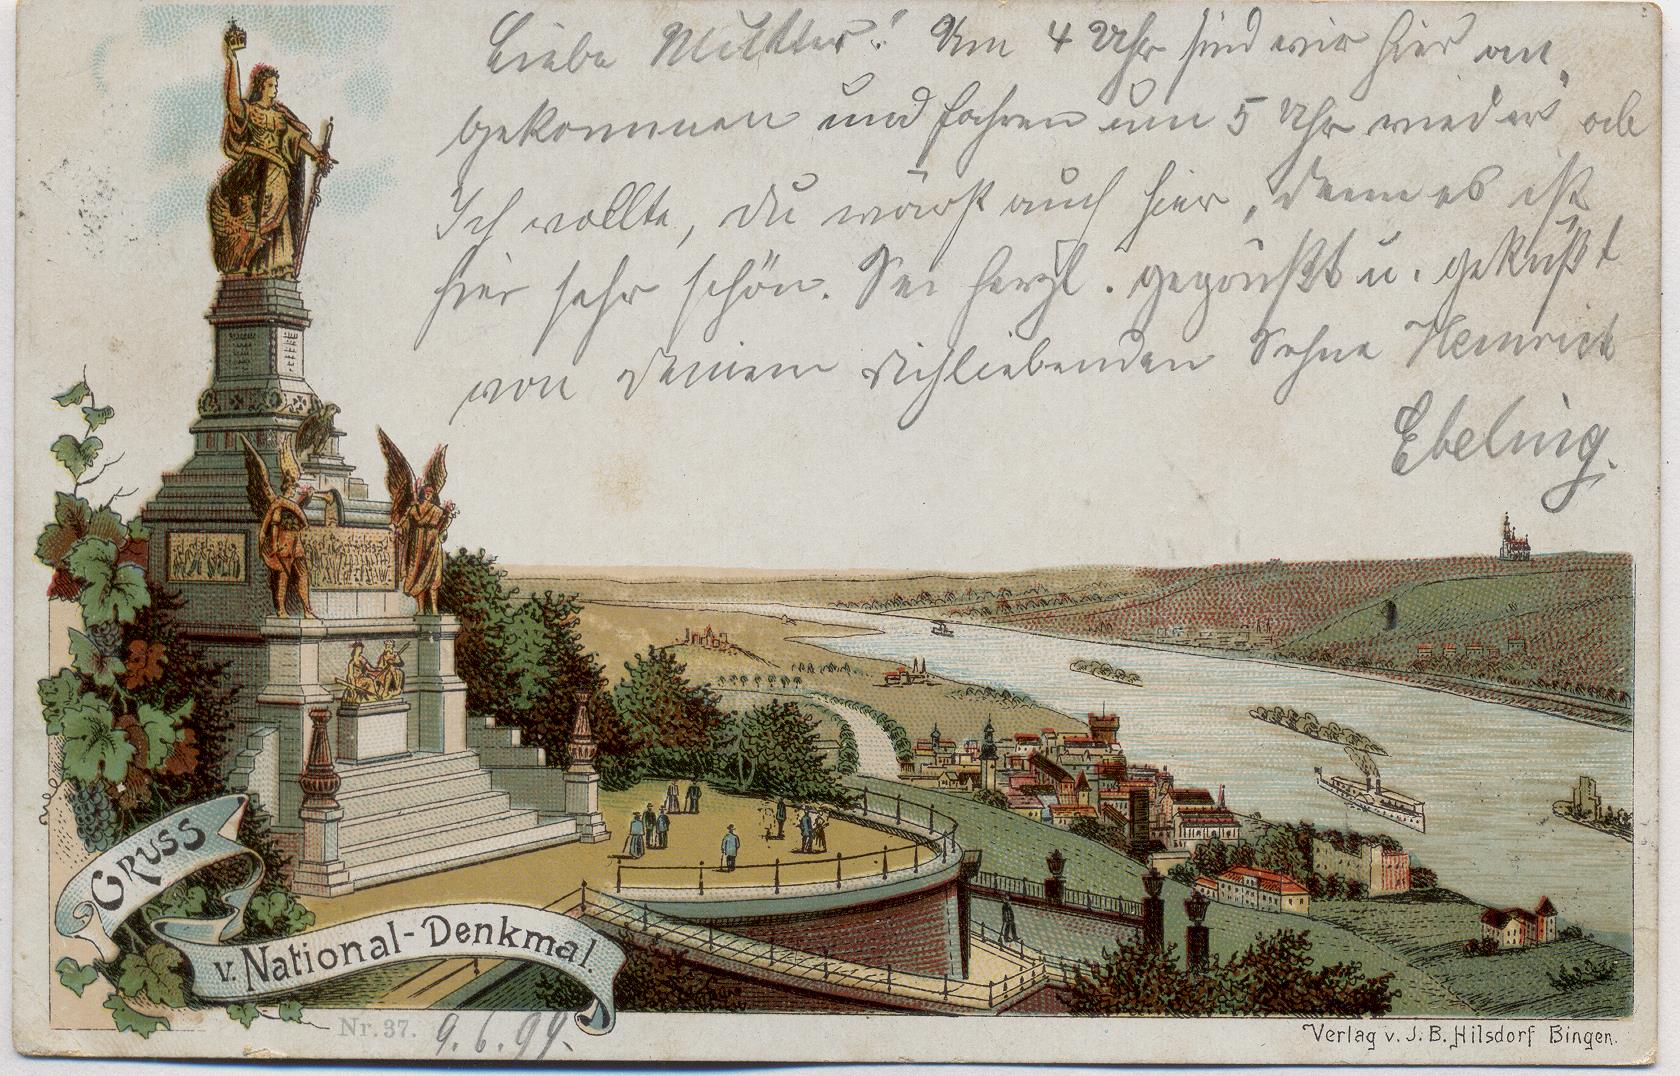 Liebe Mutter! Um 4 Uhr sind wir hier an,
gekommen und fahren um 5 Uhr wieder ab
Ich wollte, du wärst auch hier, denn es ist
hier sehr schön. Sei herzl. gegrüßt u. geküßt
von deinem dichliebenden Sohne Heinrich
Ebeling.
Gruss
v. National-Denkmal.
Nr. 37. 9.6.99.
Verlag v. J. B. Hilsdorf Bingen.